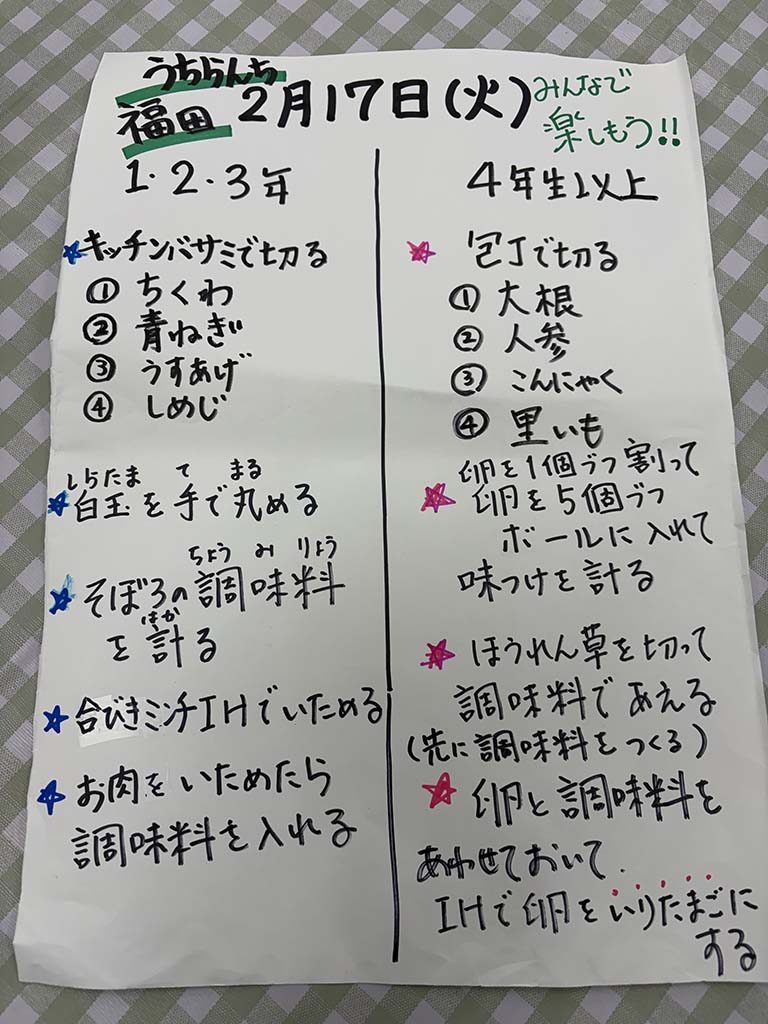 うちらんち
福田 2月17日(火) みんなで
楽しもう!!
1・2・3年
★キッチンバサミで切る
① ちくわ
② 青ねぎ
③ うすあげ
④ しめじ
しらたま て まる
★白玉を手で丸める
ちょう み りょう
★そぼろの調味料
はか
を計る
★合びきミンチIHでいためる
★お肉をいためたら
調味料を入れる
4年生以上
★包丁で切る
① 大根
② 人参
③ こんにゃく
④ 里いも
卵を1個ヅフ割って
★卵を5個ヅフ
ボールに入れて
味つけを計る
★ほうれん草を切って
調味料であえる
(先に調味料をつくる)
★卵と調味料を
あわせておいて.
IHで卵をいりたまごに
する